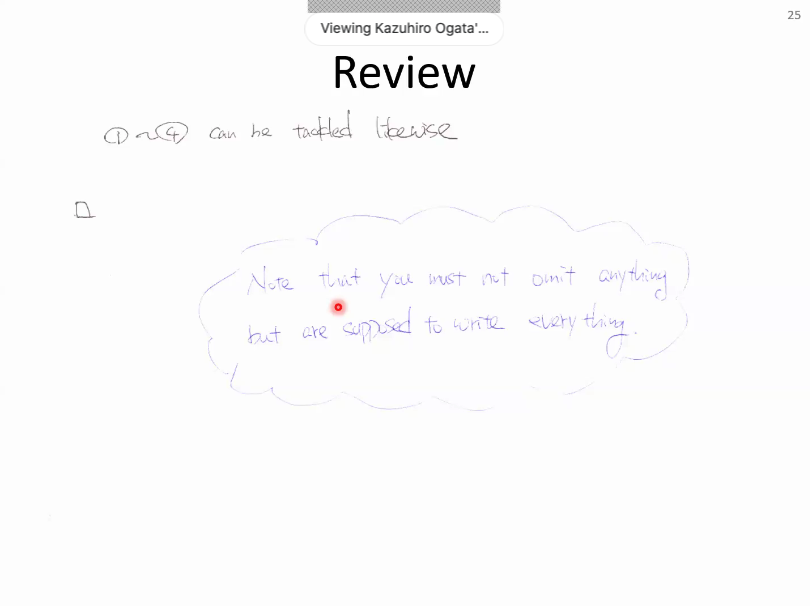 25
Viewing Kazuhiro Ogata'...
Review
① ~ ④ can be tackled likewise
Note that you must not omit anything
but are supposed to write everything.